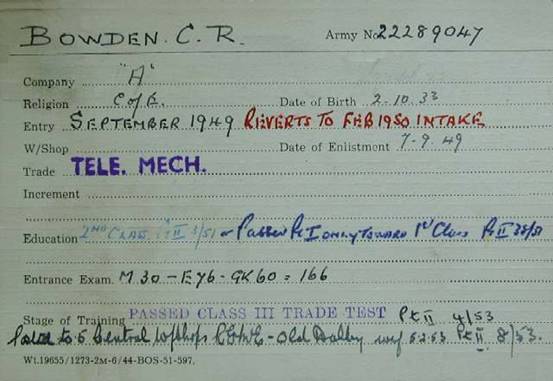 BOWDEN. C. R. Army No 22289047
Company "A"
Religion C of E. Date of Birth 2-10.33
Entry SEPTEMBER 1949 REVERTS TO FEB 1950 INTAKE
W/Shop Date of Enlistment 7-9.49
Trade TELE. MECH.
Increment
Education 2ND CLASS Pt II 3/51 Passed Pt I only Toward 1st Class Pt II
Entrance Exam. M 30 - E76 - GK 60 = 166
Stage of Training PASSED CLASS III TRADE TEST Pt II 4/53
to 5 Central W/Shops REME - Old Dalby wef 5.2.53 Pt II 8/53.
Wt.19655/1273-2m-6/44-BOS-51-597.